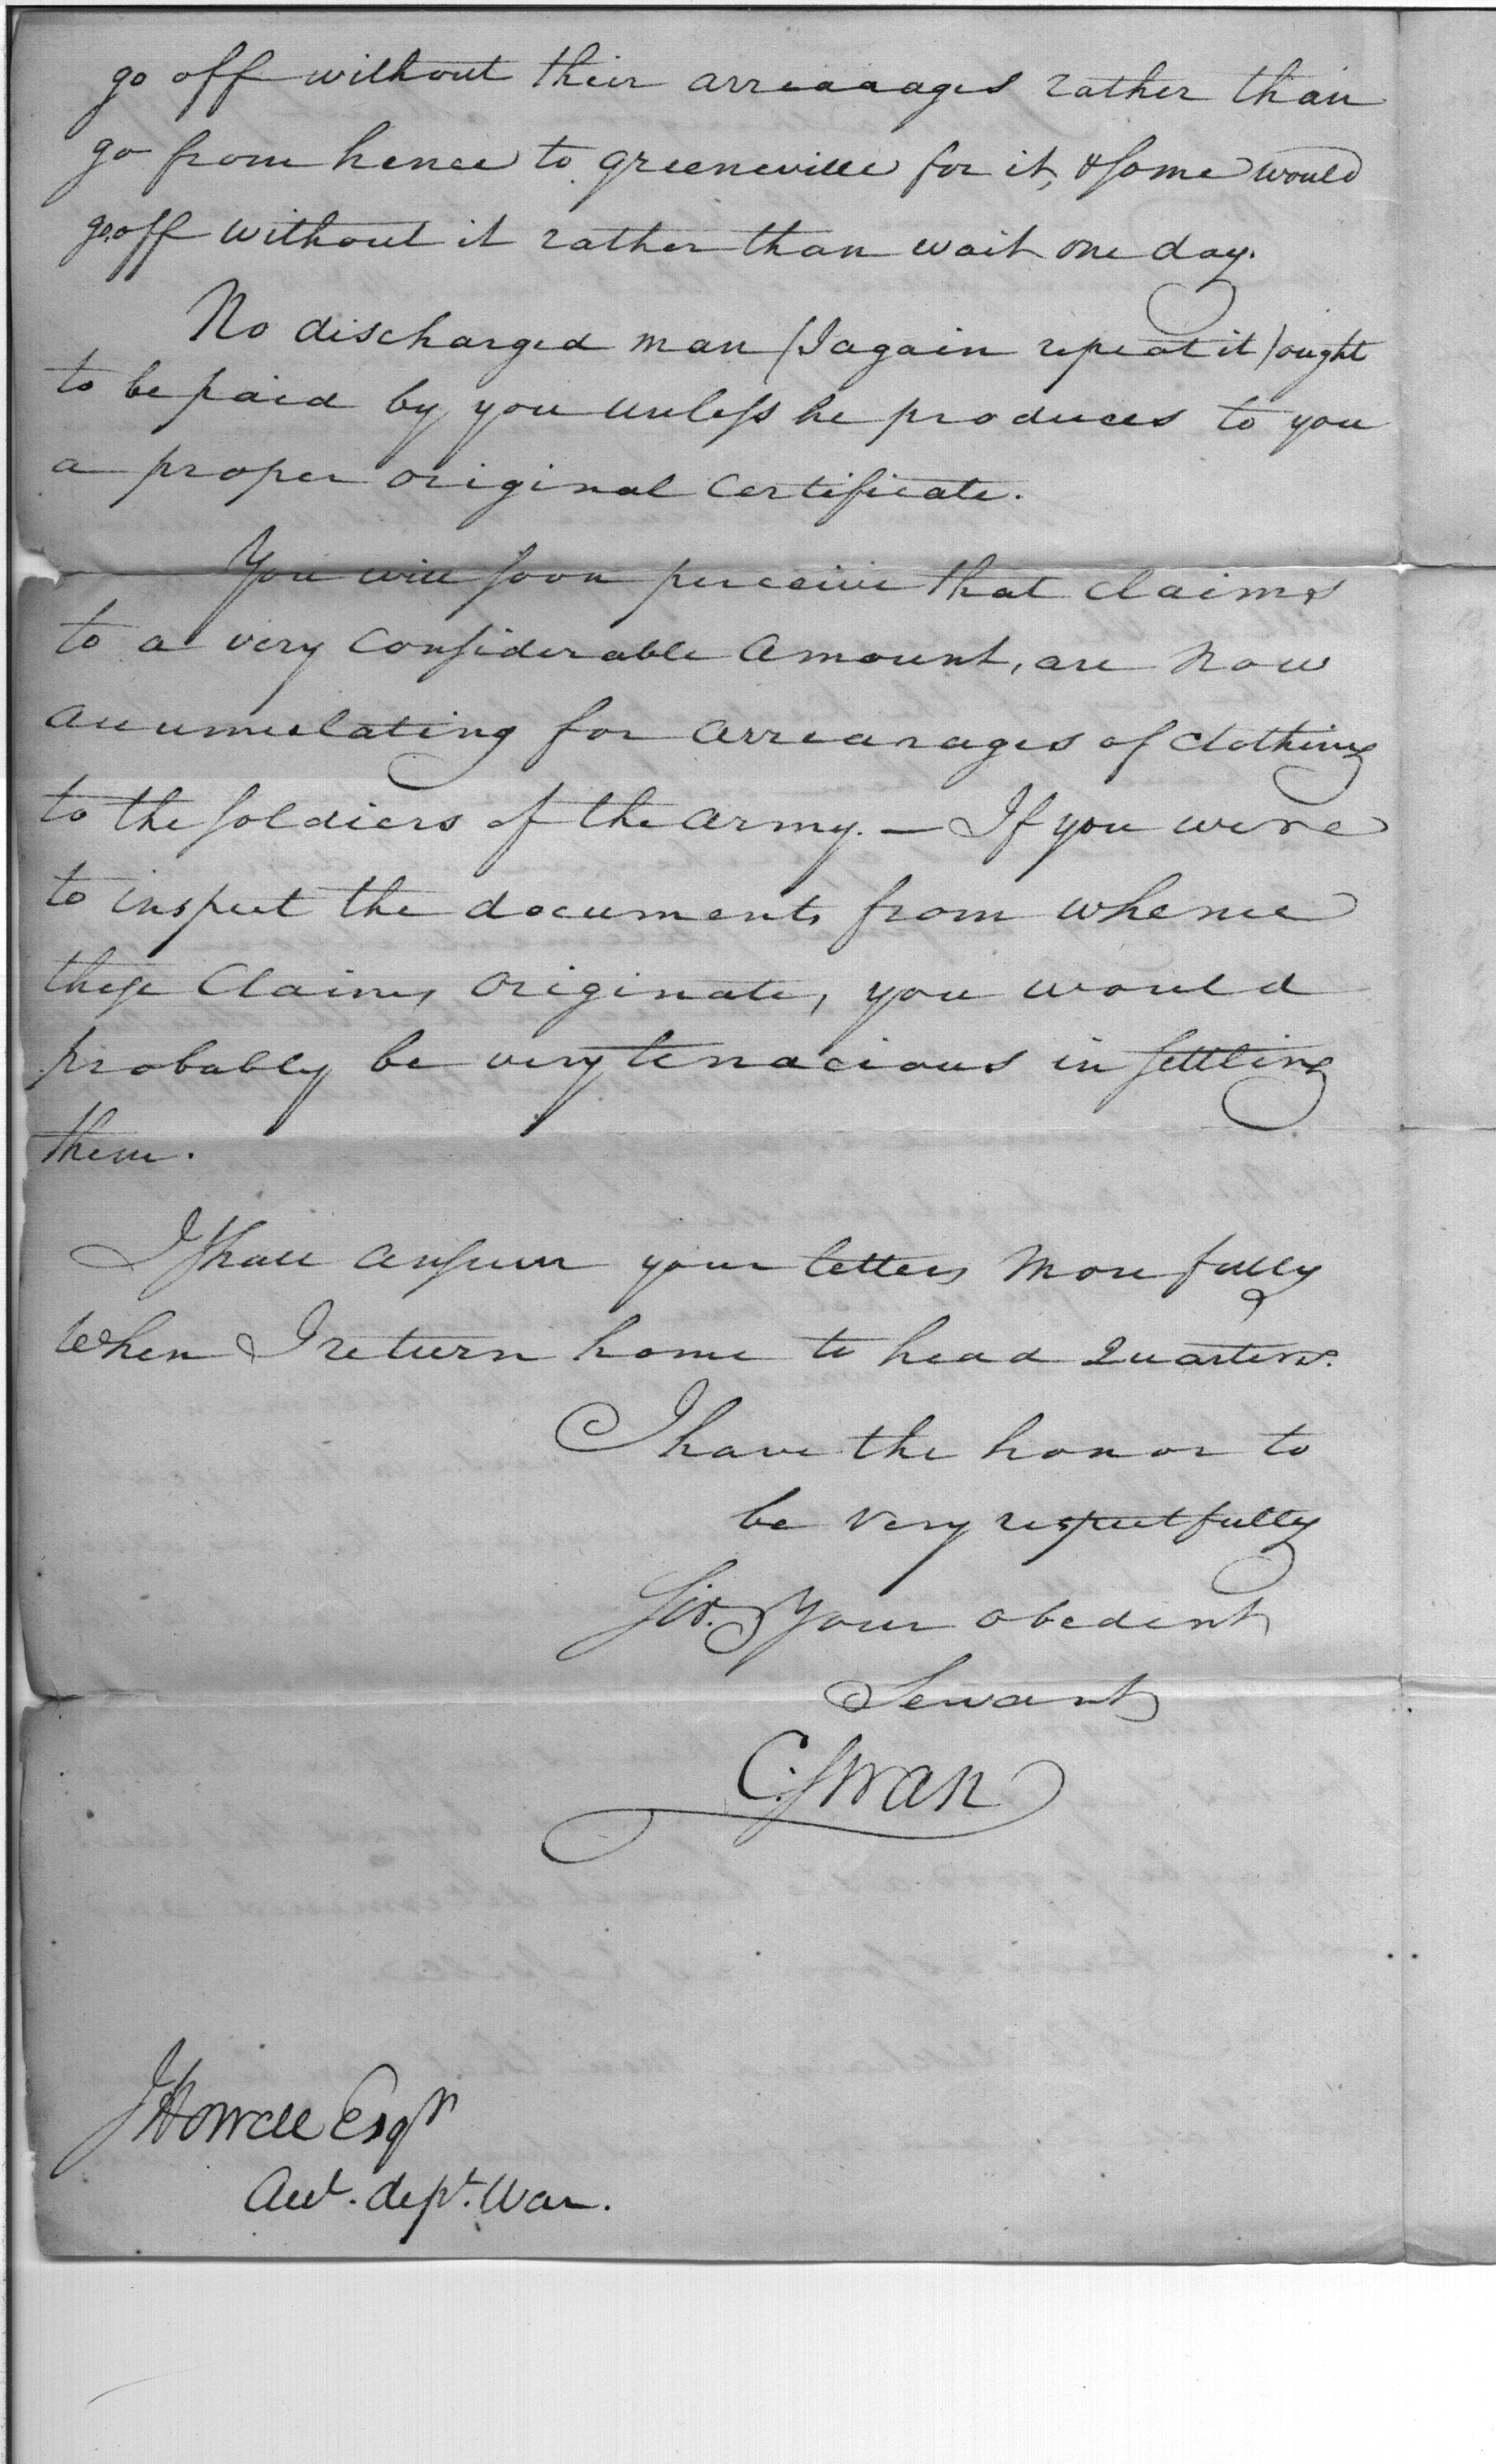 go off without their arrearages rather than
go from hence to greeneville for it, & some would
go off without it rather than wait one day.
No discharged man (I again repeat it) ought
to be paid by you unless he produces to you
a proper original Certificate.
You will soon perceive that Claims
to a very Considerable Amount, are Now
accumulating for arrearages of Clothing
to the soldiers of the army. — If you were
to inspect the documents from whence
these Claims Originate, you would
probably be very tenacious in settling
them.
I shall answer your letters More fully
When I return home to head Quarters.
I have the honor to
be Very respectfully
Sir. Your obedient
Servant
C. Swan
J Howell Esqr
Acct. dept. War.